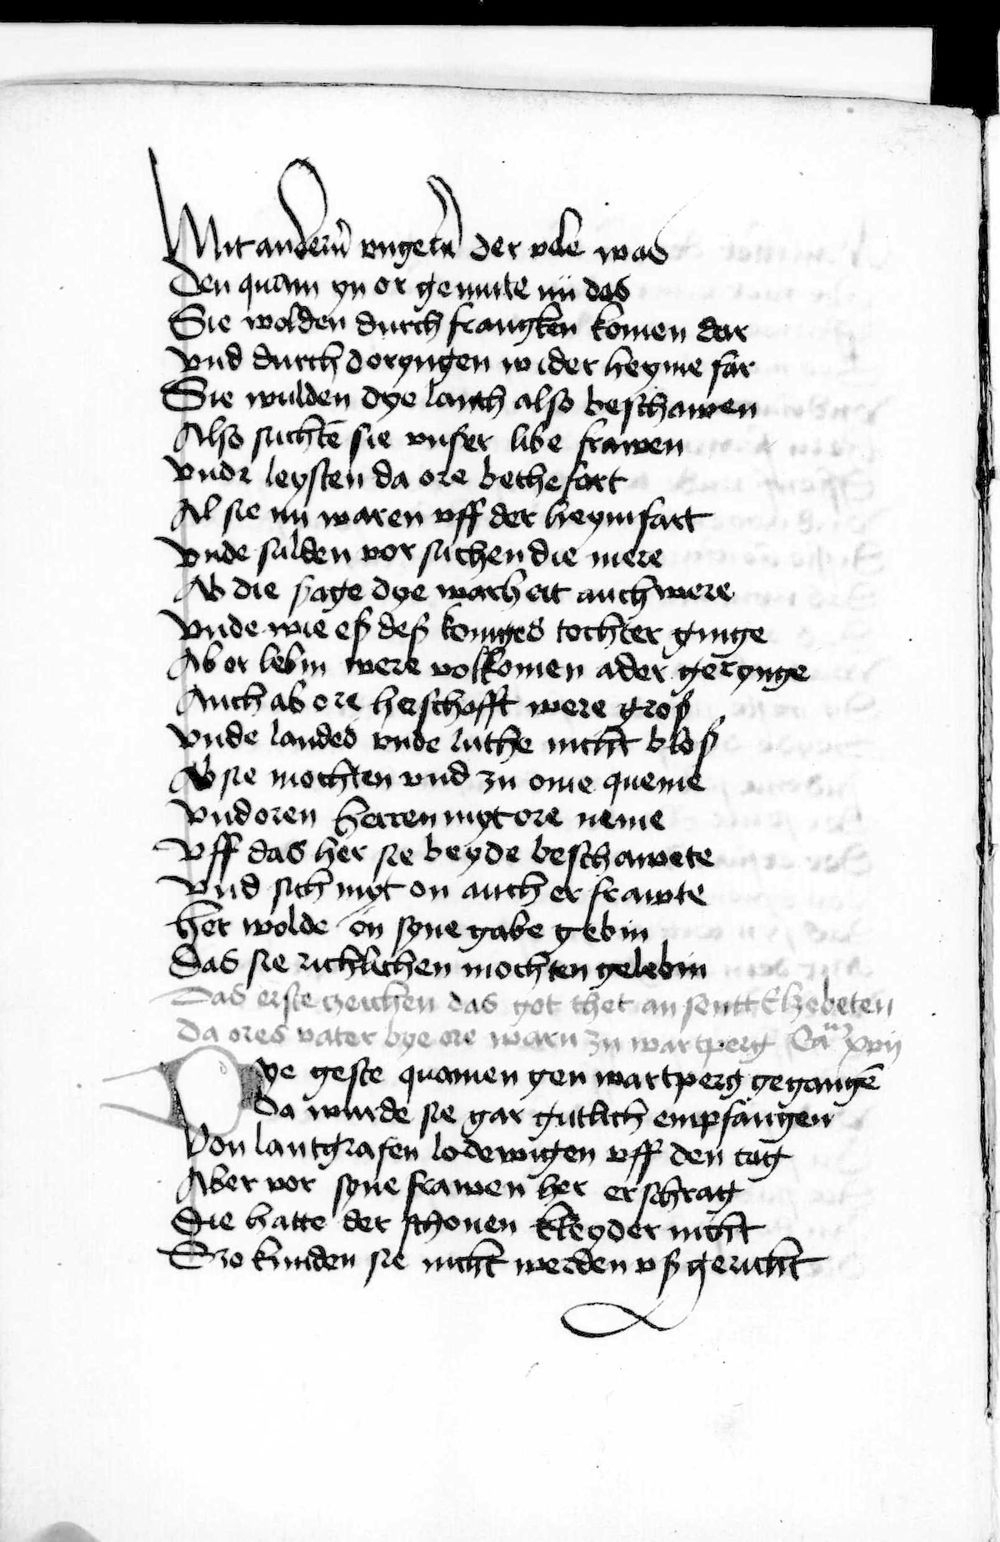 Mit andern ungern der vile was
Den quam yn or gemute nu das
Sie wolden durch frangken komen dar
vnd durch doryngen wider heyme far
Sie wulden dye lanth also beschawen
Also suchtē sie vnser libe frawen
vndr leysten da ore bethefart
Al sie nu waren vff der heymfart
vnde sulden vor suchen die mere
Ab die sage dye warheit auch were
vnde wie eß deß koniges tochter ginge
Ab or lebin were volkomen ader gerynge
Auch ab ore herschafft were groß
vnde landes vnde luthe nicht bloß
Ab sie mochten vnd zu ome queme
vnd oren herren myt ore neme
vff das her sie beyde beschawete
vnd sich myt on auch er frawte
her wolde ön syne gabe gebin
Das sie richlichen mochten gelebin
Das erste zeichen das got thet an sentt Elzebeten
da ores vater bye ore warn zu wartperg Ca xvij
Dye geste quamen gen wartperg gegangē
Da wurde sie gar gutlich empfangen
Von lantgrafen lodewigen vff den tag
Aber vor syne frawen her erschrag
Die hatte der schonen kleyder nicht
Szo kunden sie nicht werden vß gericht